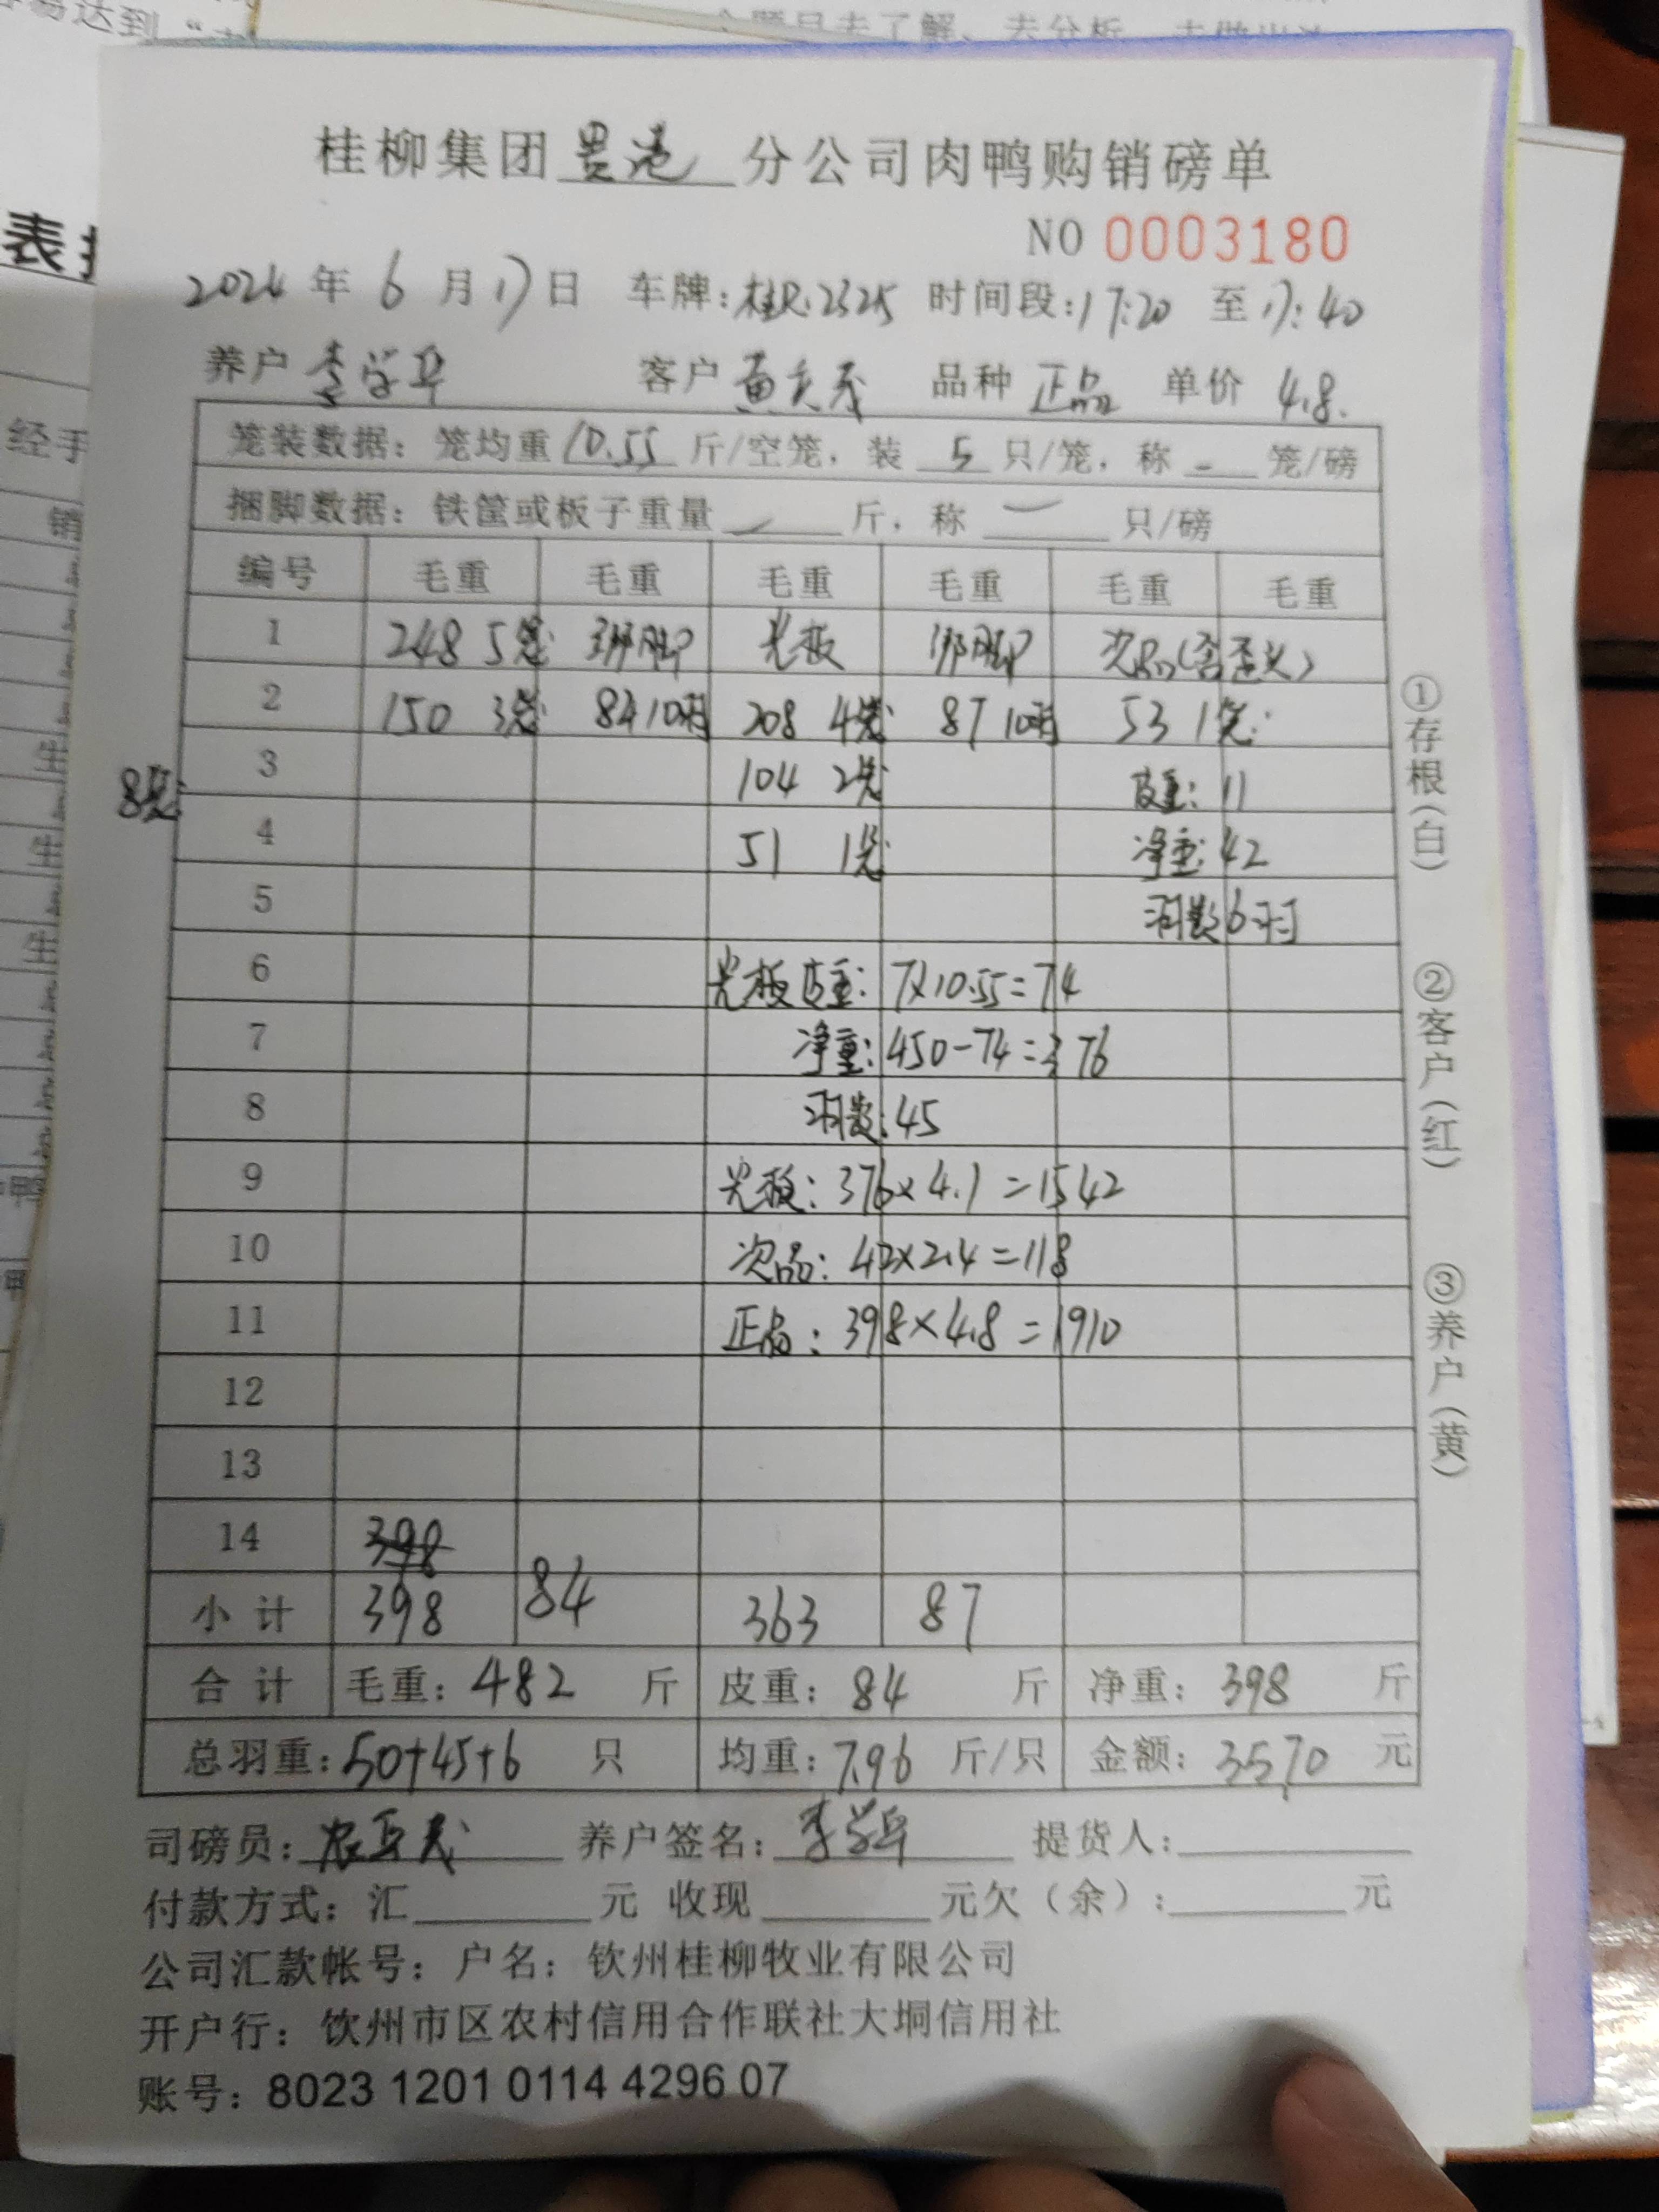 表
经手
销
桂柳集团贵港分公司肉鸭购销磅单
NO 0003180
2024 年 6 月 17 日 车牌:桂R:2325 时间段:17:20 至 17:40
养户 李学军 客户 品种 正品 单价 4.8.
笼装数据: 笼均重 10.55 斤/空笼, 装 5 只/笼, 称 - 笼/磅
捆脚数据: 铁筐或板子重量 斤, 称 一 只/磅
编号 毛重 毛重 毛重 毛重 毛重 毛重
1 248 5笼 绑脚 光板 绑脚 次品(含歪头)
2 150 3笼 84 10羽 208 4笼 87 10羽 53 1笼
8笼
3 104 2笼 皮重: 11
4 51 1笼 净重: 42
5 羽数 6羽
6 光板皮重: 7×10.55=74
7 净重: 450-74=376
8 羽数: 45
9 光板: 376×4.1=1542
10 次品: 42×2.4=118
11 正品: 398×4.8=1910
12
13
14 398
小计 398 84 363 87
合计 毛重: 482 斤 皮重: 84 斤 净重: 398 斤
总羽重: 50+45+6 只 均重: 7.96 斤/只 金额: 3570 元
司磅员: 养户签名: 李学军 提货人:
付款方式: 汇 元 收现 元欠(余): 元
公司汇款帐号: 户名: 钦州桂柳牧业有限公司
开户行: 钦州市区农村信用合作联社大垌信用社
账号: 8023 1201 0114 4296 07
①存根(白)
②客户(红)
③养户(黄)